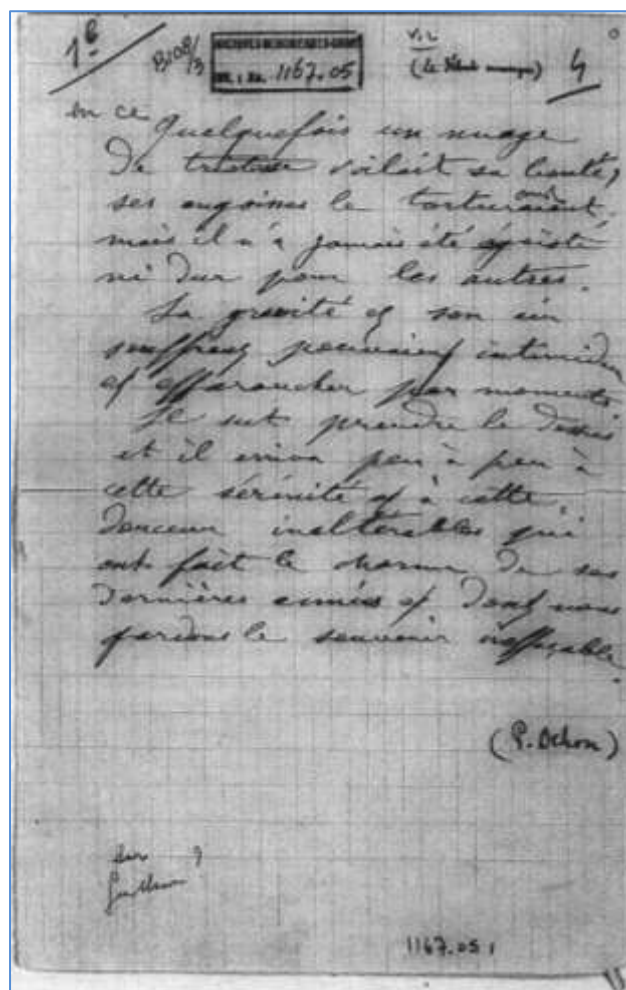 1e
B108/3
1167.05
V.2
(Le début manque)
4
en ce
Quelquefois un nuage
de tristesse voilait sa bonté,
ses angoisses le torturaient
mais il n'a jamais été égoïste
ni dur pour les autres.
La gravité et son air
souffrant pouvaient intimider
et effaroucher par moments.
Il sut prendre le dessus
et il arriva peu à peu à
cette sérénité et à cette
douceur inaltérables qui
ont fait le charme de ses
dernières années et dont nous
gardons le souvenir ineffaçable.
(P. Othon)
sur ?
1167.05 1